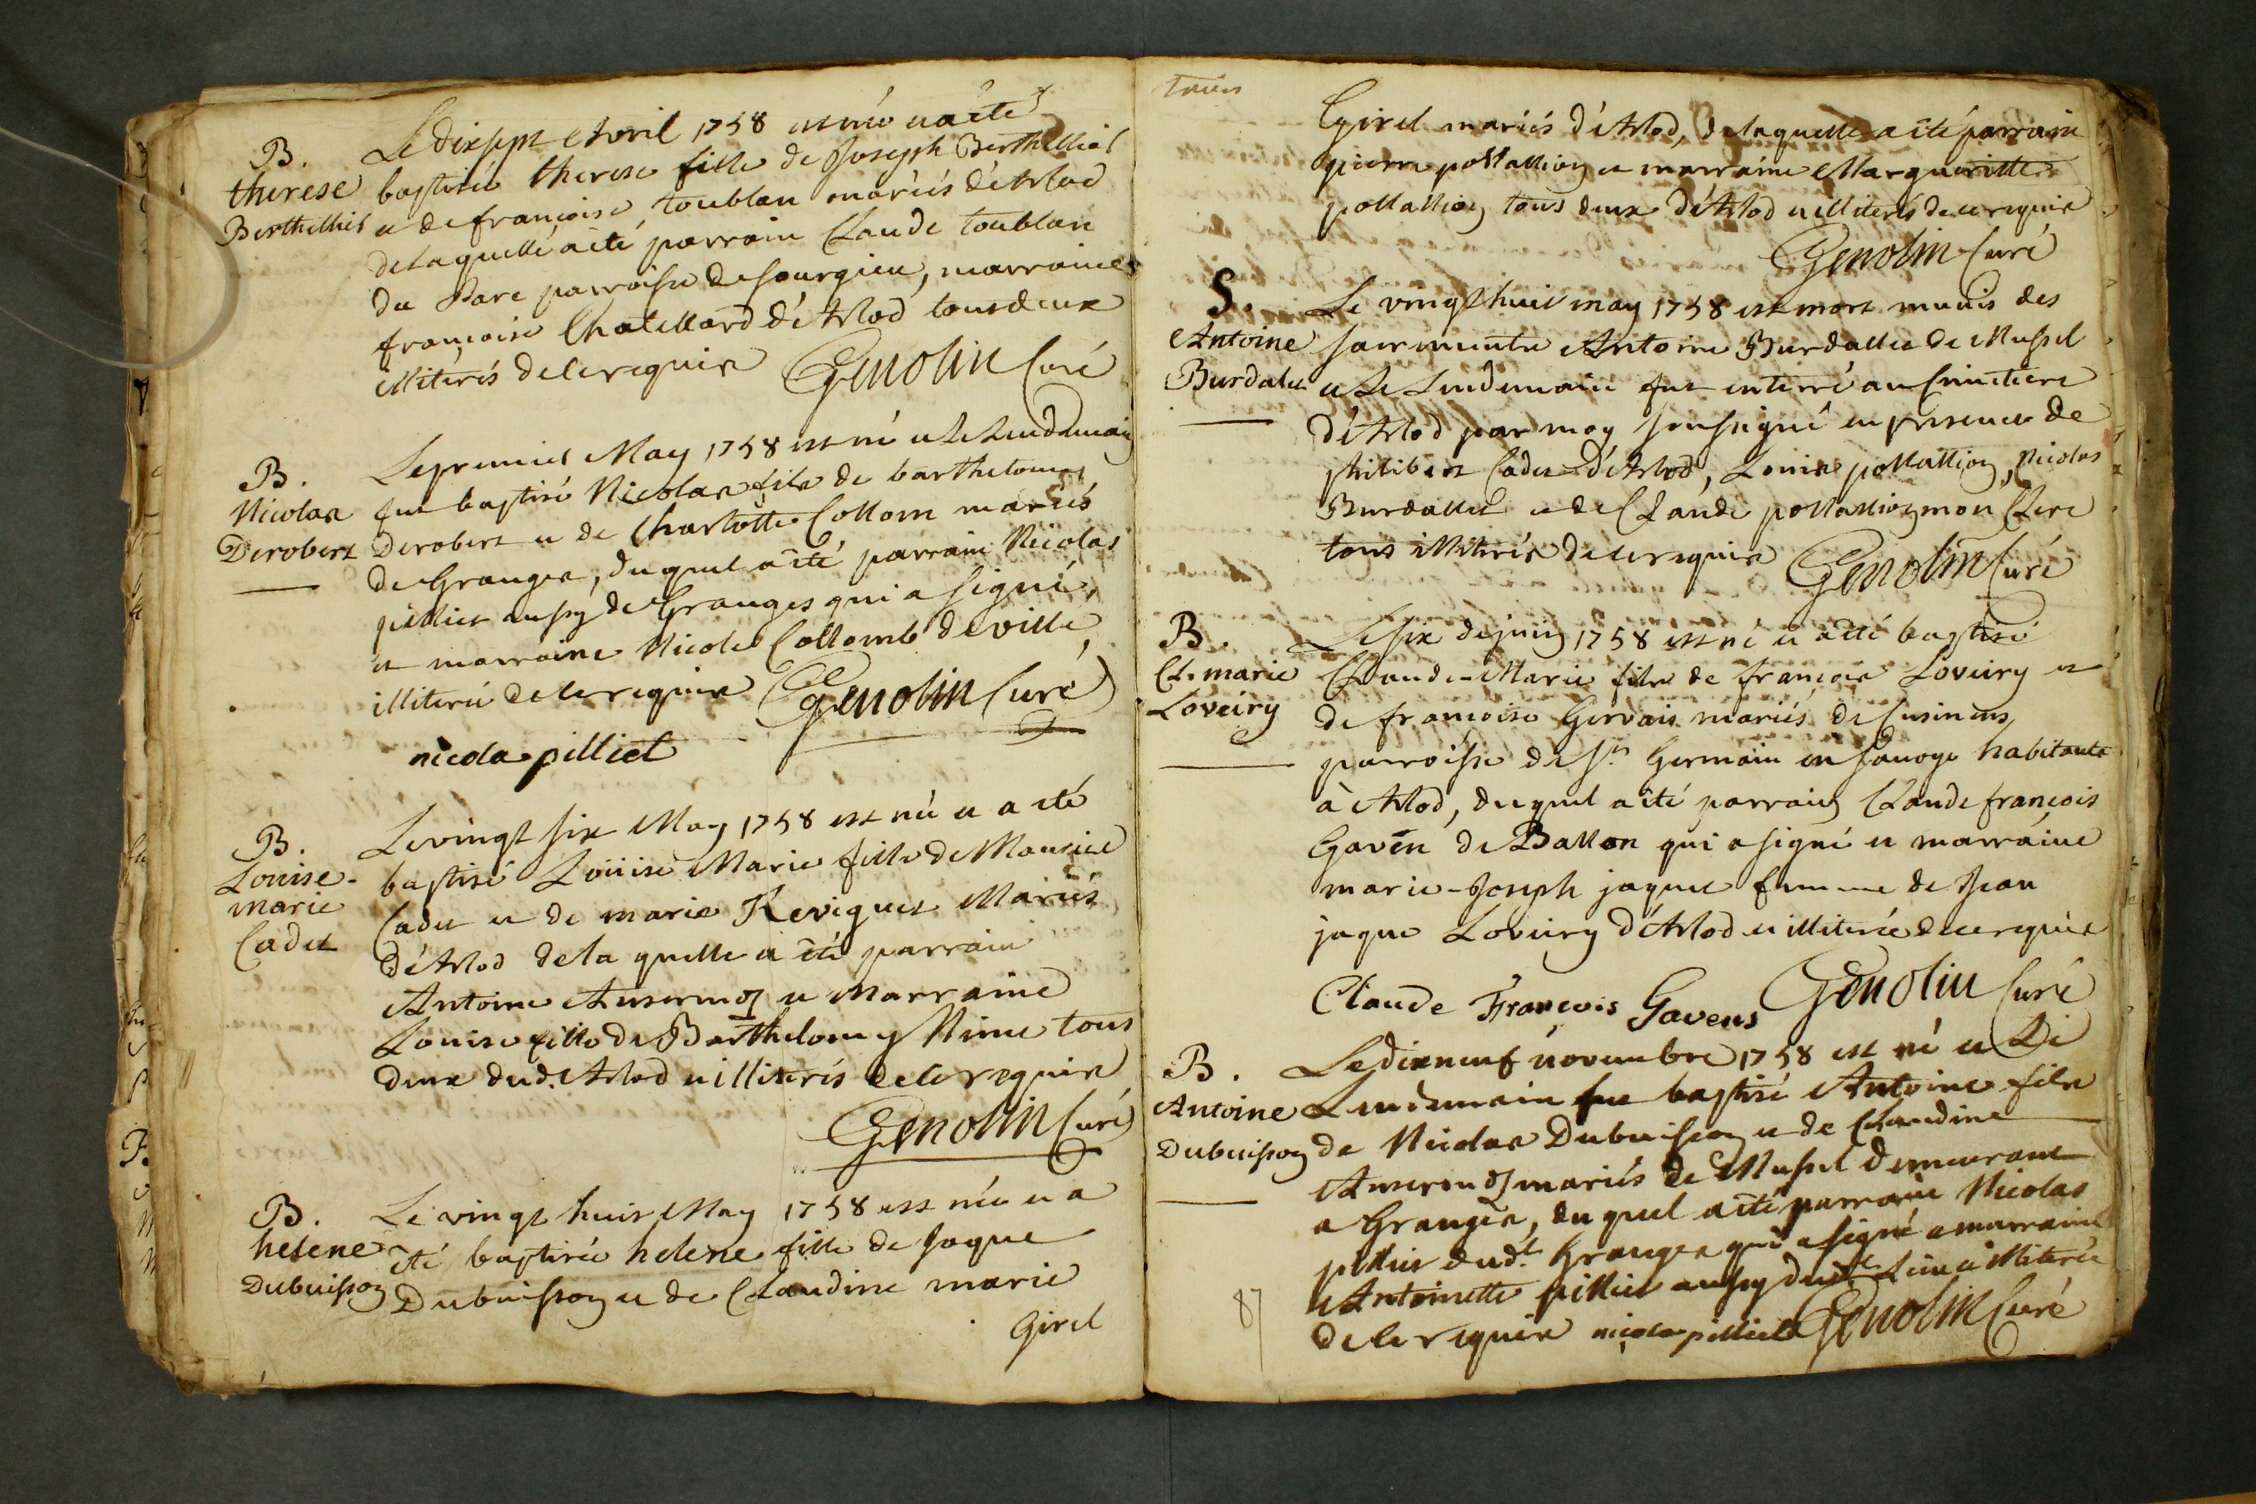 B.
therese
Berthelliet
Le dixsept Avril 1758 est née et a été
baptisée therese fille de Joseph Berthelliet
et de françoise toublan mariés d'Arlod
de laquelle a été parrain Claude toublan
du Parc parroisse de sourgieu, marraine
françoise Chatellard d'Arlod tous deux
illiterés de ce requis Genolin Curé
B.
Nicolas
Derobert
Le premier May 1758 est né et le lendemain
fut baptisé Nicolas fils de barthelomy
Derobert et de Charlotte Collom mariés
de Granges, duquel a été parrain Nicolas
pilliet aussy de Granges qui a signé,
et marraine Nicole Collomb de ville,
illiterée de ce requise Genolin Curé
nicola pilliet
B.
Louise-
marie
Cadet
Le vingt six May 1758 est née et a été
baptisé Loüise Marie fille de Maurice
Cadet et de marie Reviguet Mariés
d'Arlod de la quelle a été parrain
Antoine Ansermoz et Marraine
Louise fille de Barthelomy Nime tous
deux dud. Arlod et illiterés de ce requis
Genolin Curé
B.
helene
Dubuisson
Le vingt huit May 1758 est née et a
été baptisée helene fille de Jaque
Dubuisson et de Claudine marie
Girel
Girel mariés d'Arlod, de laquelle a été parrain
pierre pollallion et marraine Margueritte
pollallion tous deux d'Arlod et illiterés de ce requis
Genolin Curé
S.
Antoine
Burdalet
Le vingt huit may 1758 est mort munis des
sacrements Antoine Burdallet de Mussel
et le lendemain fut enterré au Cimetiere
d'Arlod par moy soussigné en presence de
philibert Cadet d'Arlod, Louis pollallion, Nicolas
Burdallet et de Claude pollallion mon Clerc
tous illiterés de ce requis Genolin Curé
B.
Cl. marie
Loveiry
Le six de juin 1758 est né et a été baptisé
Claude-Marie fils de françois Loveiry et
de françoise Gervais mariés de Cusinens
parroisse de St. Germain en Savoye habitants
à Arlod, duquel a été parrain Claude françois
Gaven de Ballon qui a signé et marraine
marie-Joseph jaquet femme de Jean
jaque Loveiry d'Arlod et illiterée de ce requise
Claude François Gavens Genolin Curé
B.
Antoine
Dubuisson
Le dixneuf novembre 1758 est né et Le
Lendemain fut baptisé Antoine fils
de Nicolas Dubuisson et de Claudine
Ansermoz mariés de Mussel demeurant
a Granges, du quel a été parrain Nicolas
pilliet dudt. Granges qui a signé et marraine
Antoinette pilliet aussy dudt. Lieu illiterée
de ce requise nicola pilliet Genolin Curé
87